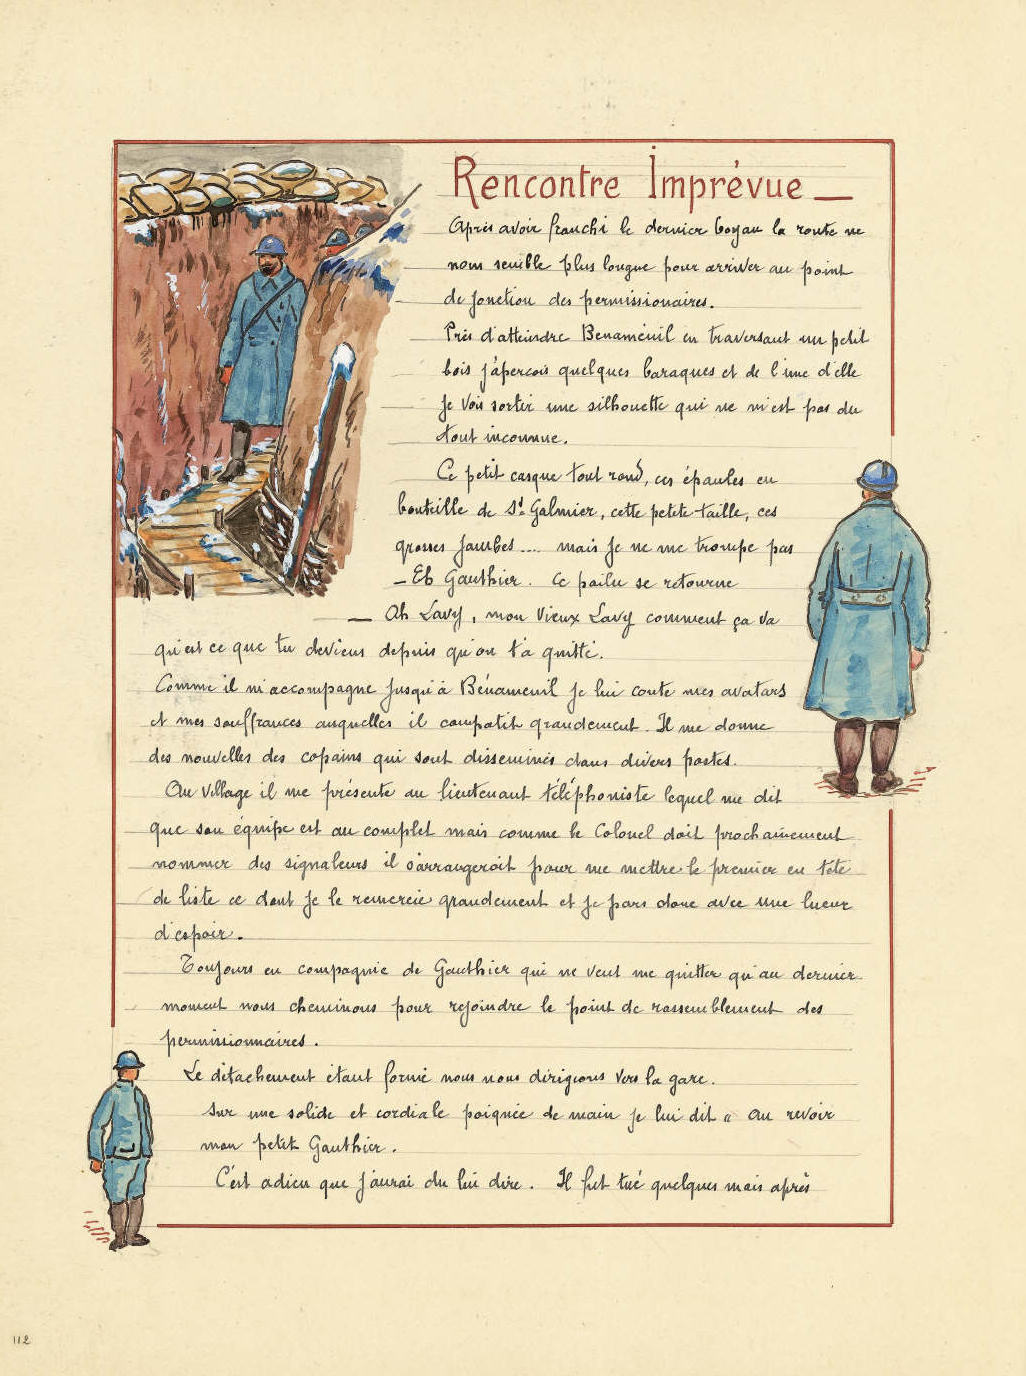 Rencontre Imprévue —
Après avoir franchi le dernier boyau la route ne
nous semble plus longue pour arriver au point
de jonction des permissionaires.
Près d'atteindre Benaménil en traversant un petit
bois j'aperçois quelques baraques et de l'une d'elle
je vois sortir une silhouette qui ne m'est pas du
tout inconnue.
Ce petit casque tout rond, ces épaules en
bouteille de St Galmier, cette petite taille, ces
grosses jambes .... mais je ne me trompe pas
— Eh Gauthier. Ce poilu se retourne
— Ah Lavy, mon vieux Lavy comment ça va
qu'est ce que tu deviens depuis qu'on t'a quitté.
Comme il m'accompagne jusqu'à Bénaménil je lui conte mes avatars
et mes souffrances auquelles il compatit grandement. Il me donne
des nouvelles des copains qui sont disseminés dans divers postes.
Au village il me présente au lieutenant téléphoniste lequel me dit
que son équipe est au complet mais comme le Colonel doit prochainement
nommer des signaleurs il s'arrangeroit pour me mettre le premier en tête
de liste ce dont je le remercie grandement et je pars donc avec une lueur
d'espoir.
Toujours en compagnie de Gauthier qui ne veut me quitter qu'au dernier
moment nous cheminons pour rejoindre le point de rassemblement des
permissionnaires.
Le détachement étant formé nous nous dirigeons vers la gare.
Sur une solide et cordiale poignée de main je lui dit " au revoir
mon petit Gauthier.
C'est adieu que j'aurai du lui dire. Il fut tué quelques mois après
112